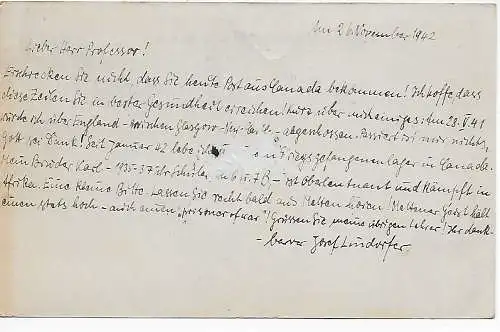 Am 2. November 1942
Lieber Herr Professor!
Erschrecken Sie nicht, dass Sie heute Post aus Canada bekommen! Ich hoffe, dass
diese Zeilen Sie in bester Gesundheit erreichen! Kurz über mich einiges: Am 28. V. 41
wurde ich über England - zwischen Glasgow - - abgeschossen. Passiert ist mir nichts,
Gott sei Dank! Seit Januar 42 lebe ich in Kriegsgefangenenlager in Canada.
Mein Bruder Karl - 1935-37 Ihr Schüler, u. 7B, - ist Oberleutnant und kämpft in
Afrika. Eine kleine Bitte: Lassen Sie recht bald aus Metten hören! Mettener Geist hält
einen stets hoch - auch einen "prisoner of war"! Grüssen Sie meine übrigen Lehrer! Ihr dank-
barer Josef Lindorfer.